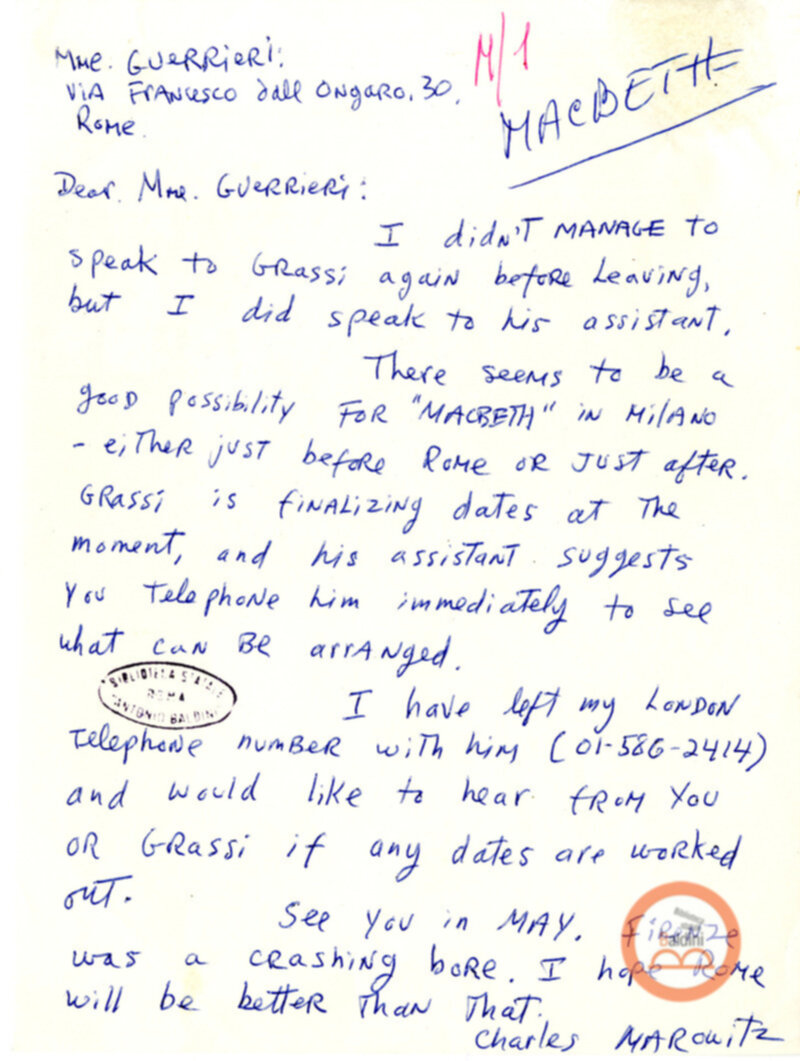 Mme. GUERRIERI:
VIA FRANCESCO dall ONgARO. 30.
ROME.
M/1
MACBETH
Dear. Mme. GUERRIERI:
I didN'T MANAGE TO
speak to GRassi again before LeaviNg,
but I did speak to his assistant.
There seems to be a
gooD possibility FOR "MACBETH" iN MilANO
- eiTHER just before ROME OR JUST after.
GRassi is fiNALIZINg dates at The
moment, and his assistaNT. suggests
You TelephoNe him immediately to see
what caN BE arrANged.
BIBLIOTECA STATALE
ROMA
"ANTONIO BALDINI"
I have left my LONDON
TelephoNe NumBER with him (01-586-2414)
and would like to hear fROM YOU
OR GRassi if any dates are worked
out.
See You iN MAY. FiRENZE
was a cRAShiNg bore. I hope ROME
will be betteR ThaN ThaT.
Charles MAROWITZ
Biblioteca
Baldini